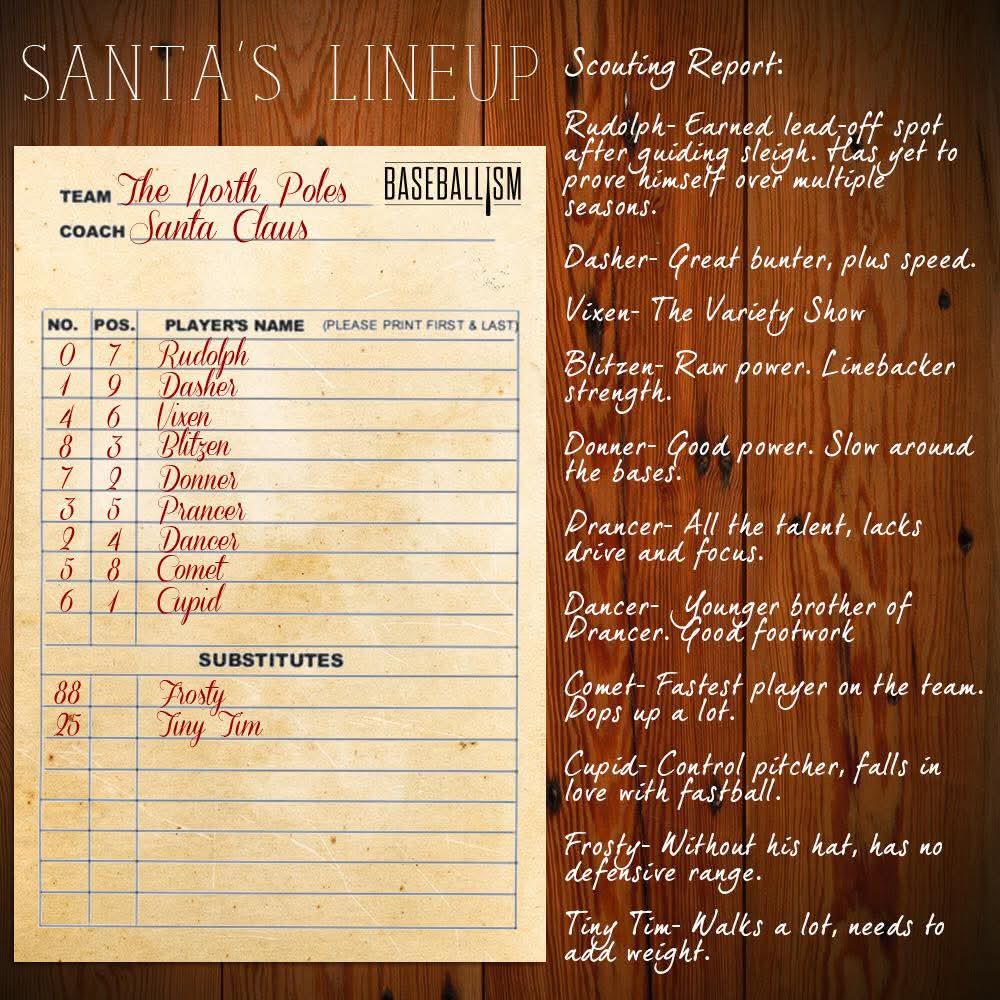 SANTA'S LINEUP
TEAM The North Poles
BASEBALLISM
COACH Santa Claus
NO. POS. PLAYER'S NAME (PLEASE PRINT FIRST & LAST)
0 7 Rudolph
1 9 Dasher
4 6 Vixen
8 3 Blitzen
7 2 Donner
3 5 Prancer
2 4 Dancer
5 8 Comet
6 1 Cupid
SUBSTITUTES
88 Frosty
25 Tiny Tim
Scouting Report:
Rudolph- Earned lead-off spot
after guiding sleigh. Has yet to
prove himself over multiple
seasons.
Dasher- Great bunter, plus speed.
Vixen- The Variety Show
Blitzen- Raw power. Linebacker
strength.
Donner- Good power. Slow around
the bases.
Prancer- All the talent, lacks
drive and focus.
Dancer- Younger brother of
Prancer. Good footwork
Comet- Fastest player on the team.
Pops up a lot.
Cupid- Control pitcher, falls in
love with fastball.
Frosty- Without his hat, has no
defensive range.
Tiny Tim- Walks a lot, needs to
add weight.